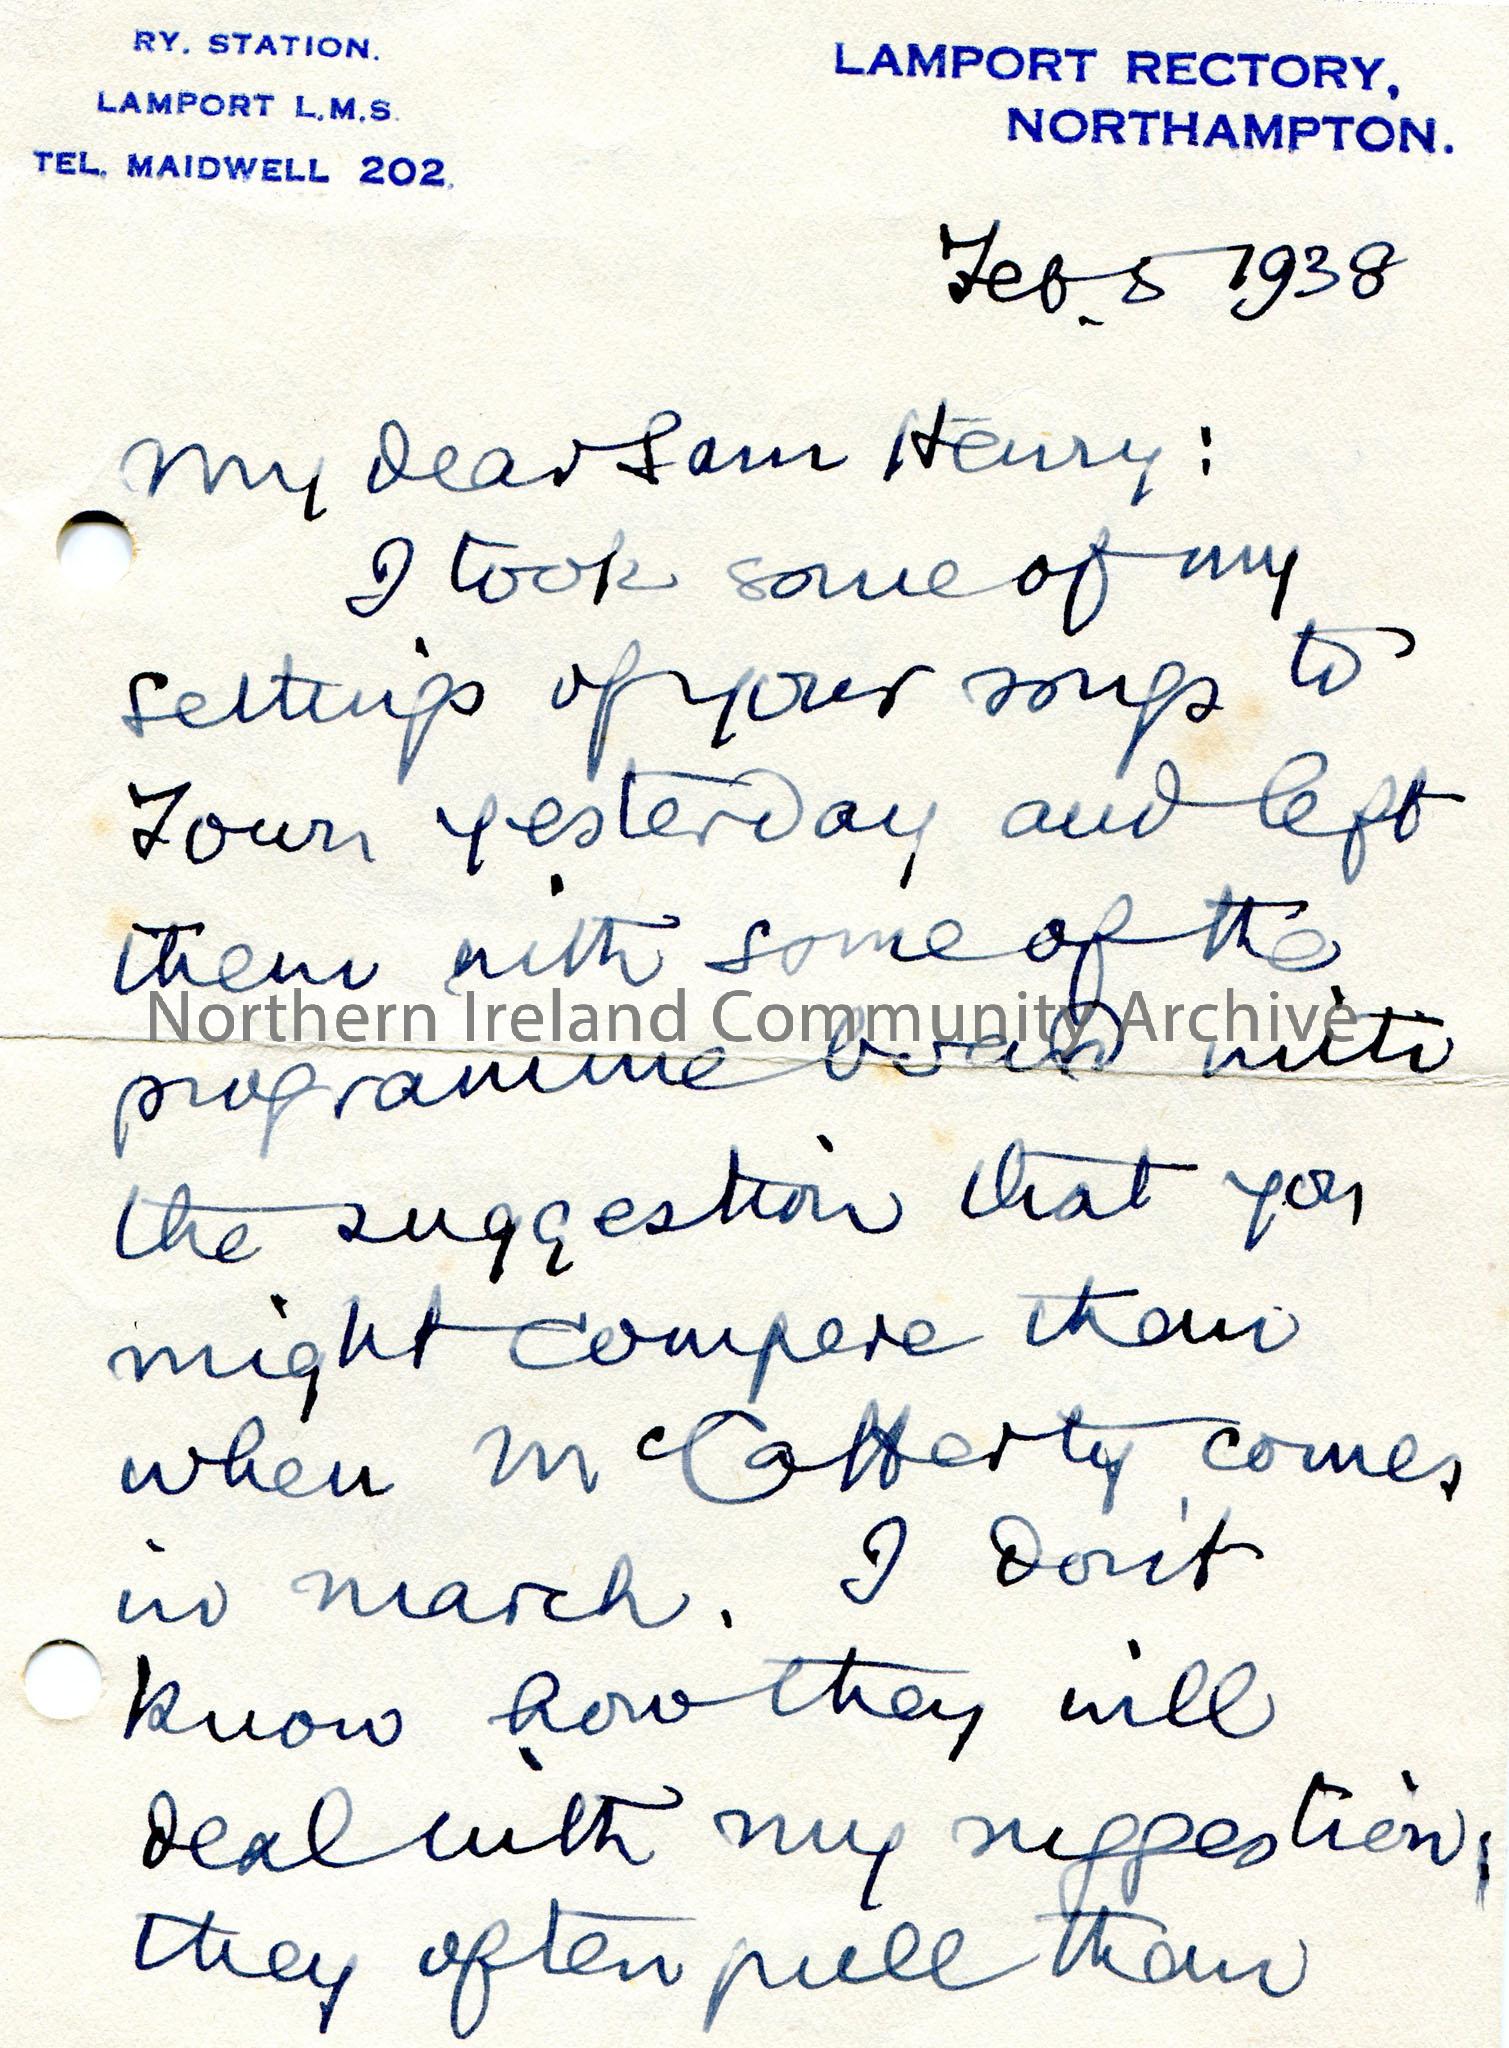 RY. STATION.
LAMPORT L.M.S.
TEL. MAIDWELL 202.
LAMPORT RECTORY,
NORTHAMPTON.
Feb. 5 1938
My dear Sam Henry:
I took some of my
settings of your songs to
Town yesterday and left
them with some of the
Northern Ireland Community Archive
programme board with
the suggestion that you
might compere them
when McCafferty comes
in March. I don't
know how they will
deal with my suggestion;
they often pull them